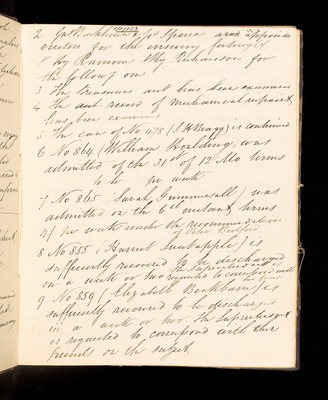 2 are appointed
visitors for the ensuing fortnight
by Ransome Hy Richardson for
the following one
3 The Treasurers acct has been examined
4 The acct record of mechanical repairs
has been examined
5 The case of No 478 is continued
6 No 864 (William Houlding) was
admitted on the 31st of 12 Mo terms
per week
7 No 865 (Sarah Summersall) was
admitted on the 6th instant, terms
4/ per week under the recommendation
of
8 No 855 (Harriet Sweetapple) is
sufficiently recovered to be discharged
in a week or two the Superintendent
is requested to correspond with
9 No 859 (Elizabeth Beckham) is
sufficiently recovered to be discharged
in a week or two. The Superintendent
is requested to correspond with their
friends on the subject